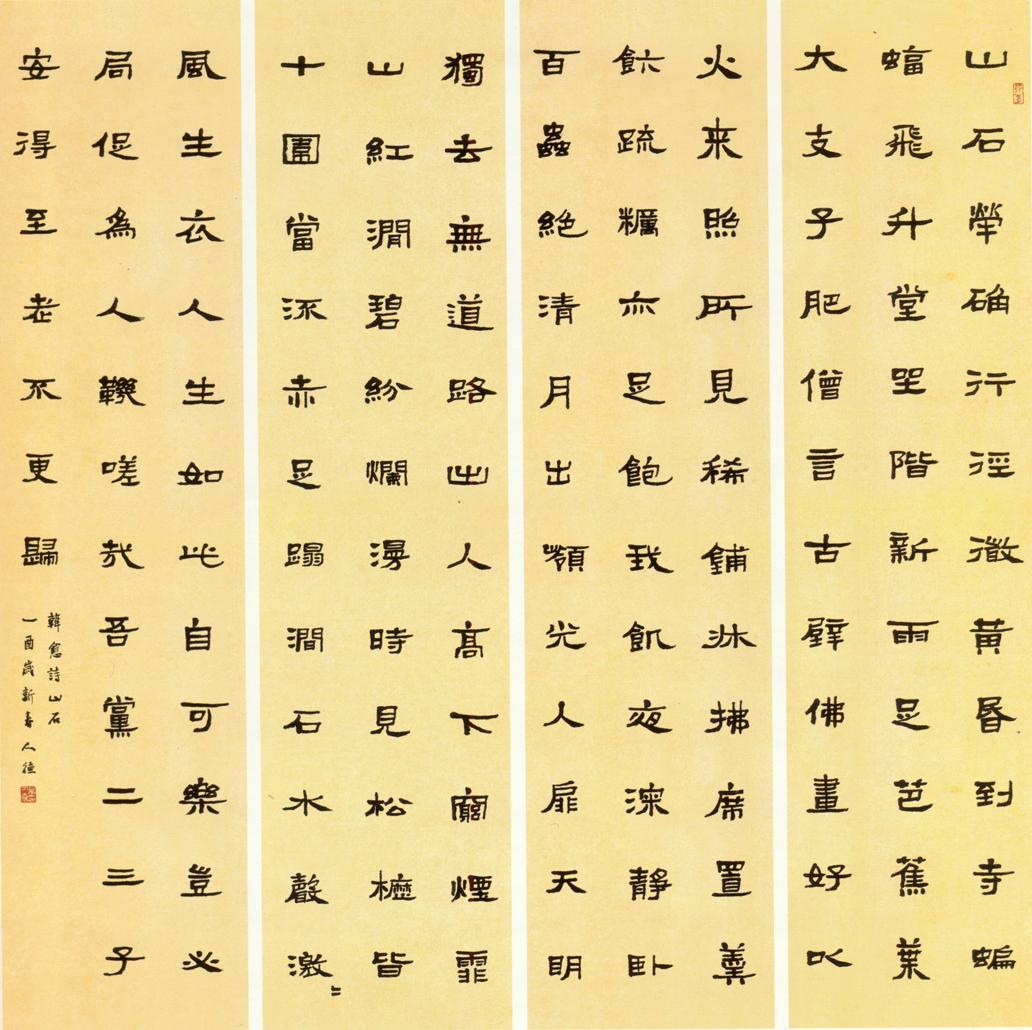 山石犖确行徑微黃昏到寺蝙
蝠飛升堂坐階新雨足芭蕉葉
大支子肥僧言古壁佛畫好以
火来照所見稀鋪牀拂席置羹
飰疏糲亦足飽我飢夜深靜卧
百蟲絕清月出嶺光入扉天明
獨去無道路出入高下窮煙霏
山紅澗碧紛爛漫時見松櫪皆
十圍當流赤足蹋澗石水聲激〻
風生衣人生如此自可樂豈必
局促為人鞿嗟哉吾黨二三子
安得至老不更歸
韓愈詩山石
乙酉歲新春